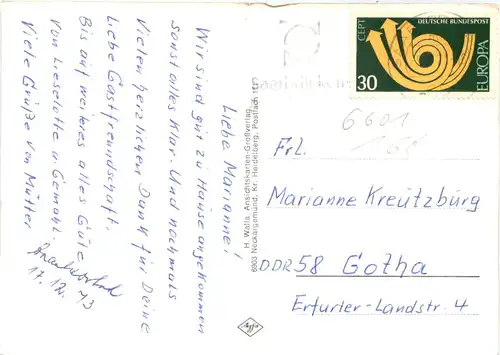 Liebe Marianne!
Wir sind gut zu Hause angekommen
sonst alles klar. Und nochmals
Vielen herzlichen Dank für Deine
Liebe Gastfreundschaft.
Bis auf weiteres alles Gute
von Lieselotte u. Gemahl.
Viele Grüße von Mutter
17.12.73
H. Walla, Ansichtskarten-Großverlag,
6903 Neckargemünd, Kr. Heidelberg, Postfach
Agfa
CEPT
DEUTSCHE BUNDESPOST
EUROPA
30
6601
Frl.
Marianne Kreutzburg
DDR 58 Gotha
Erfurter-Landstr. 4